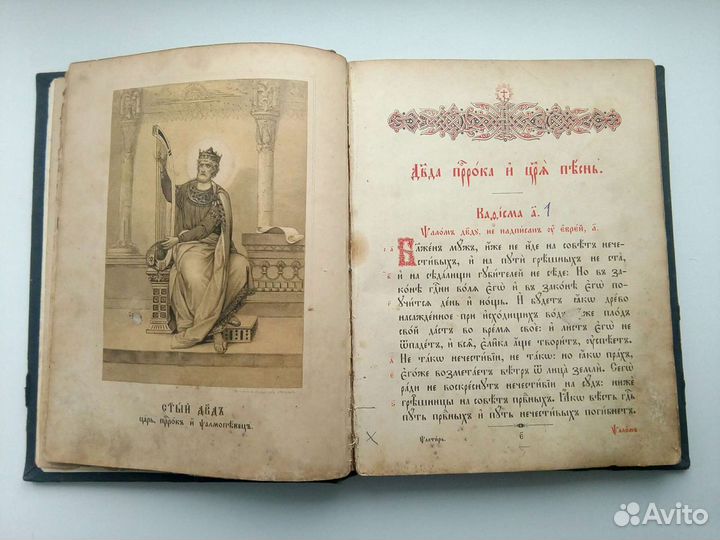 СТ҃ЫЙ ДВ҃ДЪ
ЦАРЬ, ПРР҃ОКЪ И҆ ѰАЛМОПѢВЕЦЪ.
Дв҃да прⷪ҇ро́ка и҆ цр҃ѧ̀ пѣ́снь.
Каѳі́сма а҃. 1
Ѱало́мъ дв҃ду, не надпи́санъ ᲂу҆ є҆врє́й, а҃.
Бл҃же́нъ мꙋ́жъ, и҆́же не и҆́де на совѣ́тъ нече-
сти́выхъ, и҆ на пꙋтѝ грѣ́шныхъ не ста̀,
и҆ на сѣда́лищи гꙋби́телей не сѣ́де: Но въ за-
ко́нѣ гдⷭ҇ни во́лѧ є҆гѡ̀ и҆ въ зако́нѣ є҆гѡ̀ по-
ꙋчи́тсѧ де́нь и҆ но́щь. И҆ бꙋ́детъ ꙗ҆́кѡ дре́во
насажде́нное при и҆схо́дищихъ во́дъ є҆́же пло́дъ
сво́й да́стъ во вре́мѧ своѐ: и҆ ли́стъ є҆гѡ̀ не
ѿпаде́тъ, и҆ всѧ̑, є҆ли̑ка а҆́ще твори́тъ, ᲂу҆спѣ́етъ.
Не та́кѡ нечести́вїи, не та́кѡ: но ꙗ҆́кѡ пра́хъ,
є҆го́же возмета́етъ вѣ́тръ ѿ лица̀ землѝ. Сегѡ̀
ра́ди не воскре́снꙋтъ нечести́вїи на сꙋ́дъ: нижѐ
грѣ̑шницы на совѣ́тъ пра́вⷣныхъ. Ꙗ҆́кѡ вѣ́сть гдⷭ҇ь
пꙋ́ть пра́вⷣныхъ и҆ пꙋ́ть нечести́выхъ поги́бнетъ
Ѱалти́рь.
є҃
Ѱало́мъ
Avito